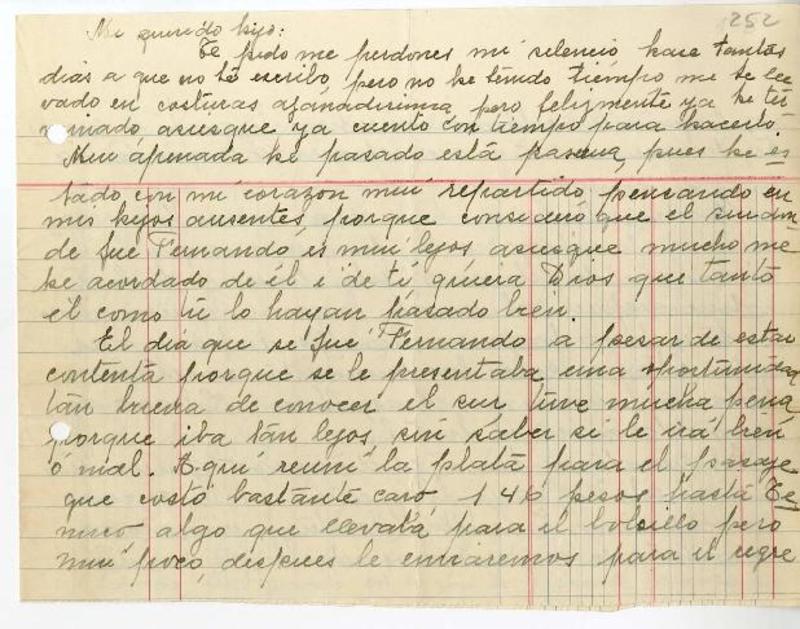 252
Mi querido hijo:
Te pido me perdones mi silencio hace tantos
dias a que no te escribo, pero no he tenido tiempo me he lle
vado en costuras afanadisima, pero felizmente ya he tér
minado, asiesque ya cuento con tiempo para hacerlo.
Mui apenada he pasado está pascua, pues he es
tado con mi corazon mui repartido, pensando en
mis hijos ausentes, porque consideró que el sur don
de fue Fernando, es mui lejos asiesque mucho me
he acordado de él i de ti, quiera Dios que tanto
él como tú lo hayan pasado bien.
El dia que se fué Fernando a pesar de estar
contenta porque se le presentaba una oportunidad
tan buena de conocer el sur, tuve mucha pena
porque iba tan lejos, sin saber si le irá bien
ó mal. Aqui reuni la plata para el pasaje
que costó bastante caro, 146 pesos hasta Te
muco, algo que llevaba para el bolsillo pero
mui poco, despues le enviaremos para el regre